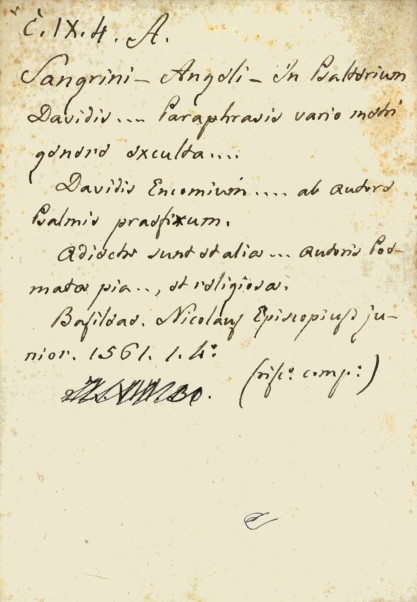 č. IX. 4. A.
Sangrini – Angeli – in Psalterium
Davidis .... Paraphrasis vario metri
genere exculta....
Davidis Encomium .... ab autore
Psalmis praefixum.
Adiecta sunt et alia ... autoris Poe-
mata pia .., et religiosa.
Basileae. Nicolaus Episcopius ju-
nior. 1561. 1. 4º
(risc: comp:)